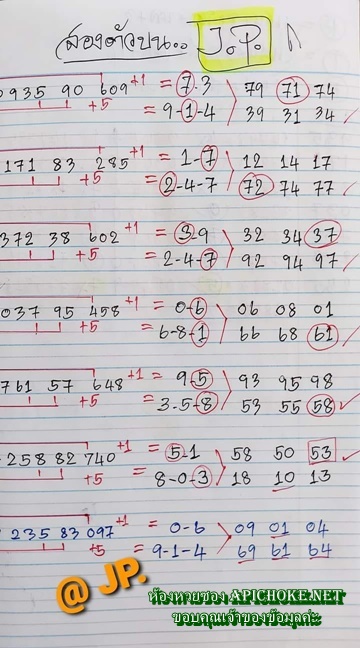 สองตัวบน.. J.P.
0935 90 609 +1 = 7-3 79 71 74
+5 = 9-1-4 39 31 34
171 83 285 +1 = 1-7 12 14 17
+5 = 2-4-7 72 74 77
372 38 602 +1 = 3-9 32 34 37
+5 = 2-4-7 92 94 97
037 95 458 +1 = 0-6 06 08 01
+5 = 6-8-1 66 68 61
761 57 648 +1 = 9-5 93 95 98
+5 = 3-5-8 53 55 58
258 82 740 +1 = 5-1 58 50 53
+5 = 8-0-3 18 10 13
235 83 097 +1 = 0-6 09 01 04
+5 = 9-1-4 69 61 64
@ JP.
ห้องหวยซอง APICHOKE.NET
ขอบคุณเจ้าของข้อมูลค่ะ